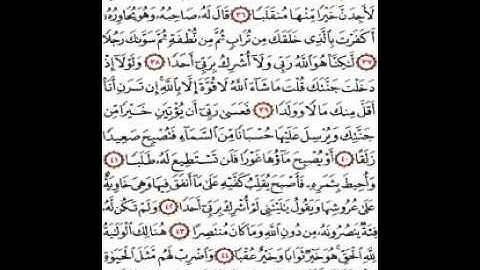 لَأَجِدَنَّ خَيْرًا مِّنْهَا مُنقَلَبًا ٣٦ قَالَ لَهُۥ صَاحِبُهُۥ وَهُوَ يُحَاوِرُهُۥٓ
أَكَفَرْتَ بِٱلَّذِى خَلَقَكَ مِن تُرَابٍ ثُمَّ مِن نُّطْفَةٍ ثُمَّ سَوَّىٰكَ رَجُلًا
٣٧ لَّٰكِنَّا۠ هُوَ ٱللَّهُ رَبِّى وَلَآ أُشْرِكُ بِرَبِّىٓ أَحَدًا ٣٨ وَلَوْلَآ إِذْ
دَخَلْتَ جَنَّتَكَ قُلْتَ مَا شَآءَ ٱللَّهُ لَا قُوَّةَ إِلَّا بِٱللَّهِ ۚ إِن تَرَنِ أَنَا۠
أَقَلَّ مِنكَ مَالًا وَوَلَدًا ٣٩ فَعَسَىٰ رَبِّىٓ أَن يُؤْتِيَنِ خَيْرًا مِّن
جَنَّتِكَ وَيُرْسِلَ عَلَيْهَا حُسْبَانًا مِّنَ ٱلسَّمَآءِ فَتُصْبِحَ صَعِيدًا
زَلَقًا ٤٠ أَوْ يُصْبِحَ مَآؤُهَا غَوْرًا فَلَن تَسْتَطِيعَ لَهُۥ طَلَبًا ٤١
وَأُحِيطَ بِثَمَرِهِۦ فَأَصْبَحَ يُقَلِّبُ كَفَّيْهِ عَلَىٰ مَآ أَنفَقَ فِيهَا وَهِىَ خَاوِيَةٌ
عَلَىٰ عُرُوشِهَا وَيَقُولُ يَٰلَيْتَنِى لَمْ أُشْرِكْ بِرَبِّىٓ أَحَدًا ٤٢ وَلَمْ تَكُن لَّهُۥ
فِئَةٌ يَنصُرُونَهُۥ مِن دُونِ ٱللَّهِ وَمَا كَانَ مُنتَصِرًا ٤٣ هُنَالِكَ ٱلْوَلَٰيَةُ
لِلَّهِ ٱلْحَقِّ ۚ هُوَ خَيْرٌ ثَوَابًا وَخَيْرٌ عُقْبًا ٤٤ وَٱضْرِبْ لَهُم مَّثَلَ ٱلْحَيَوٰةِ